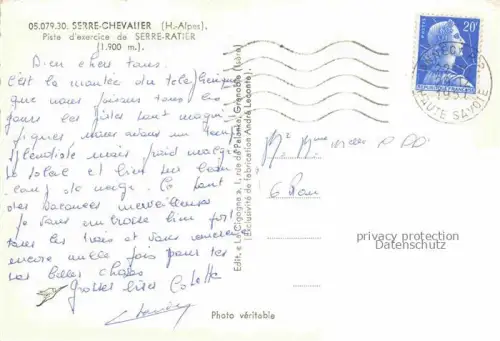 05.079.30. SERRE-CHEVALIER (H.-Alpes).
Piste d'exercice de SERRE-RATIER
(1.900 m).
Bien chers tous.
C'est la montée du téléphérique
que nous faisons tous les
jours les pistes sont magni-
fiques nous avons un temps
splendide mais froid malgré
le soleil et bien sûr beau
coup de neige. Ce sont
des vacances merveilleuses
Je vous embrasse bien fort
tous les trois et vous remercie
encore mille fois pour tes
belles choses
Grosses bises Colette
Edit. « La Cigogne », 1, rue de Palanka, Grenoble (Isère)
(Exclusivité de fabrication André Leconte)
Photo véritable
20F
HAUTE SAVOIE
privacy protection
Datenschutz